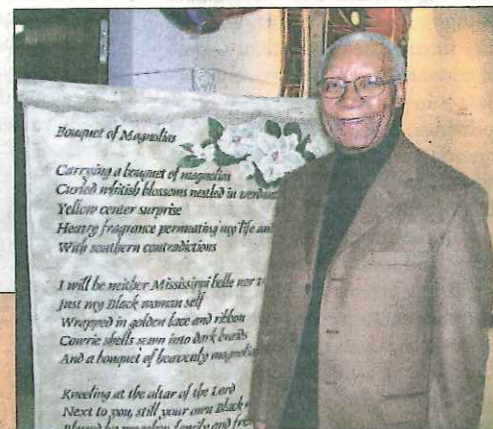 Bouquet of Magnolias
Carrying a bouquet of magnolias
Curled whitish blossoms nestled in
Yellow center surprise
Heavy fragrance permeating my life and
With southern contradictions
I will be neither Mississippi belle nor
Just my Black woman self
Wrapped in golden lace and ribbon
Cowrie shells sewn into dark braids
And a bouquet of heavenly
Kneeling at the altar of the Lord
Next to you, still your own Black
family and